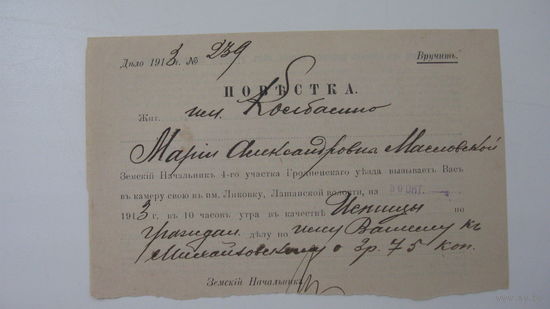 Дѣло 1913 г. № 239 Вручить.
ПОВѢСТКА.
Жит. им. Колбасино
Марiи Александровнѣ Масловской
Земскiй Начальникъ 4-го участка Гродненскаго уѣзда вызываетъ Васъ
въ камеру свою въ им. Ликовку, Лашанской волости, на 30 ОКТ.
1913 г. въ 10 часовъ утра въ качествѣ Истицы по
граждан. дѣлу по иску Вашему къ
Михайловскому о 3 р. 75 коп.
Земскiй Начальникъ